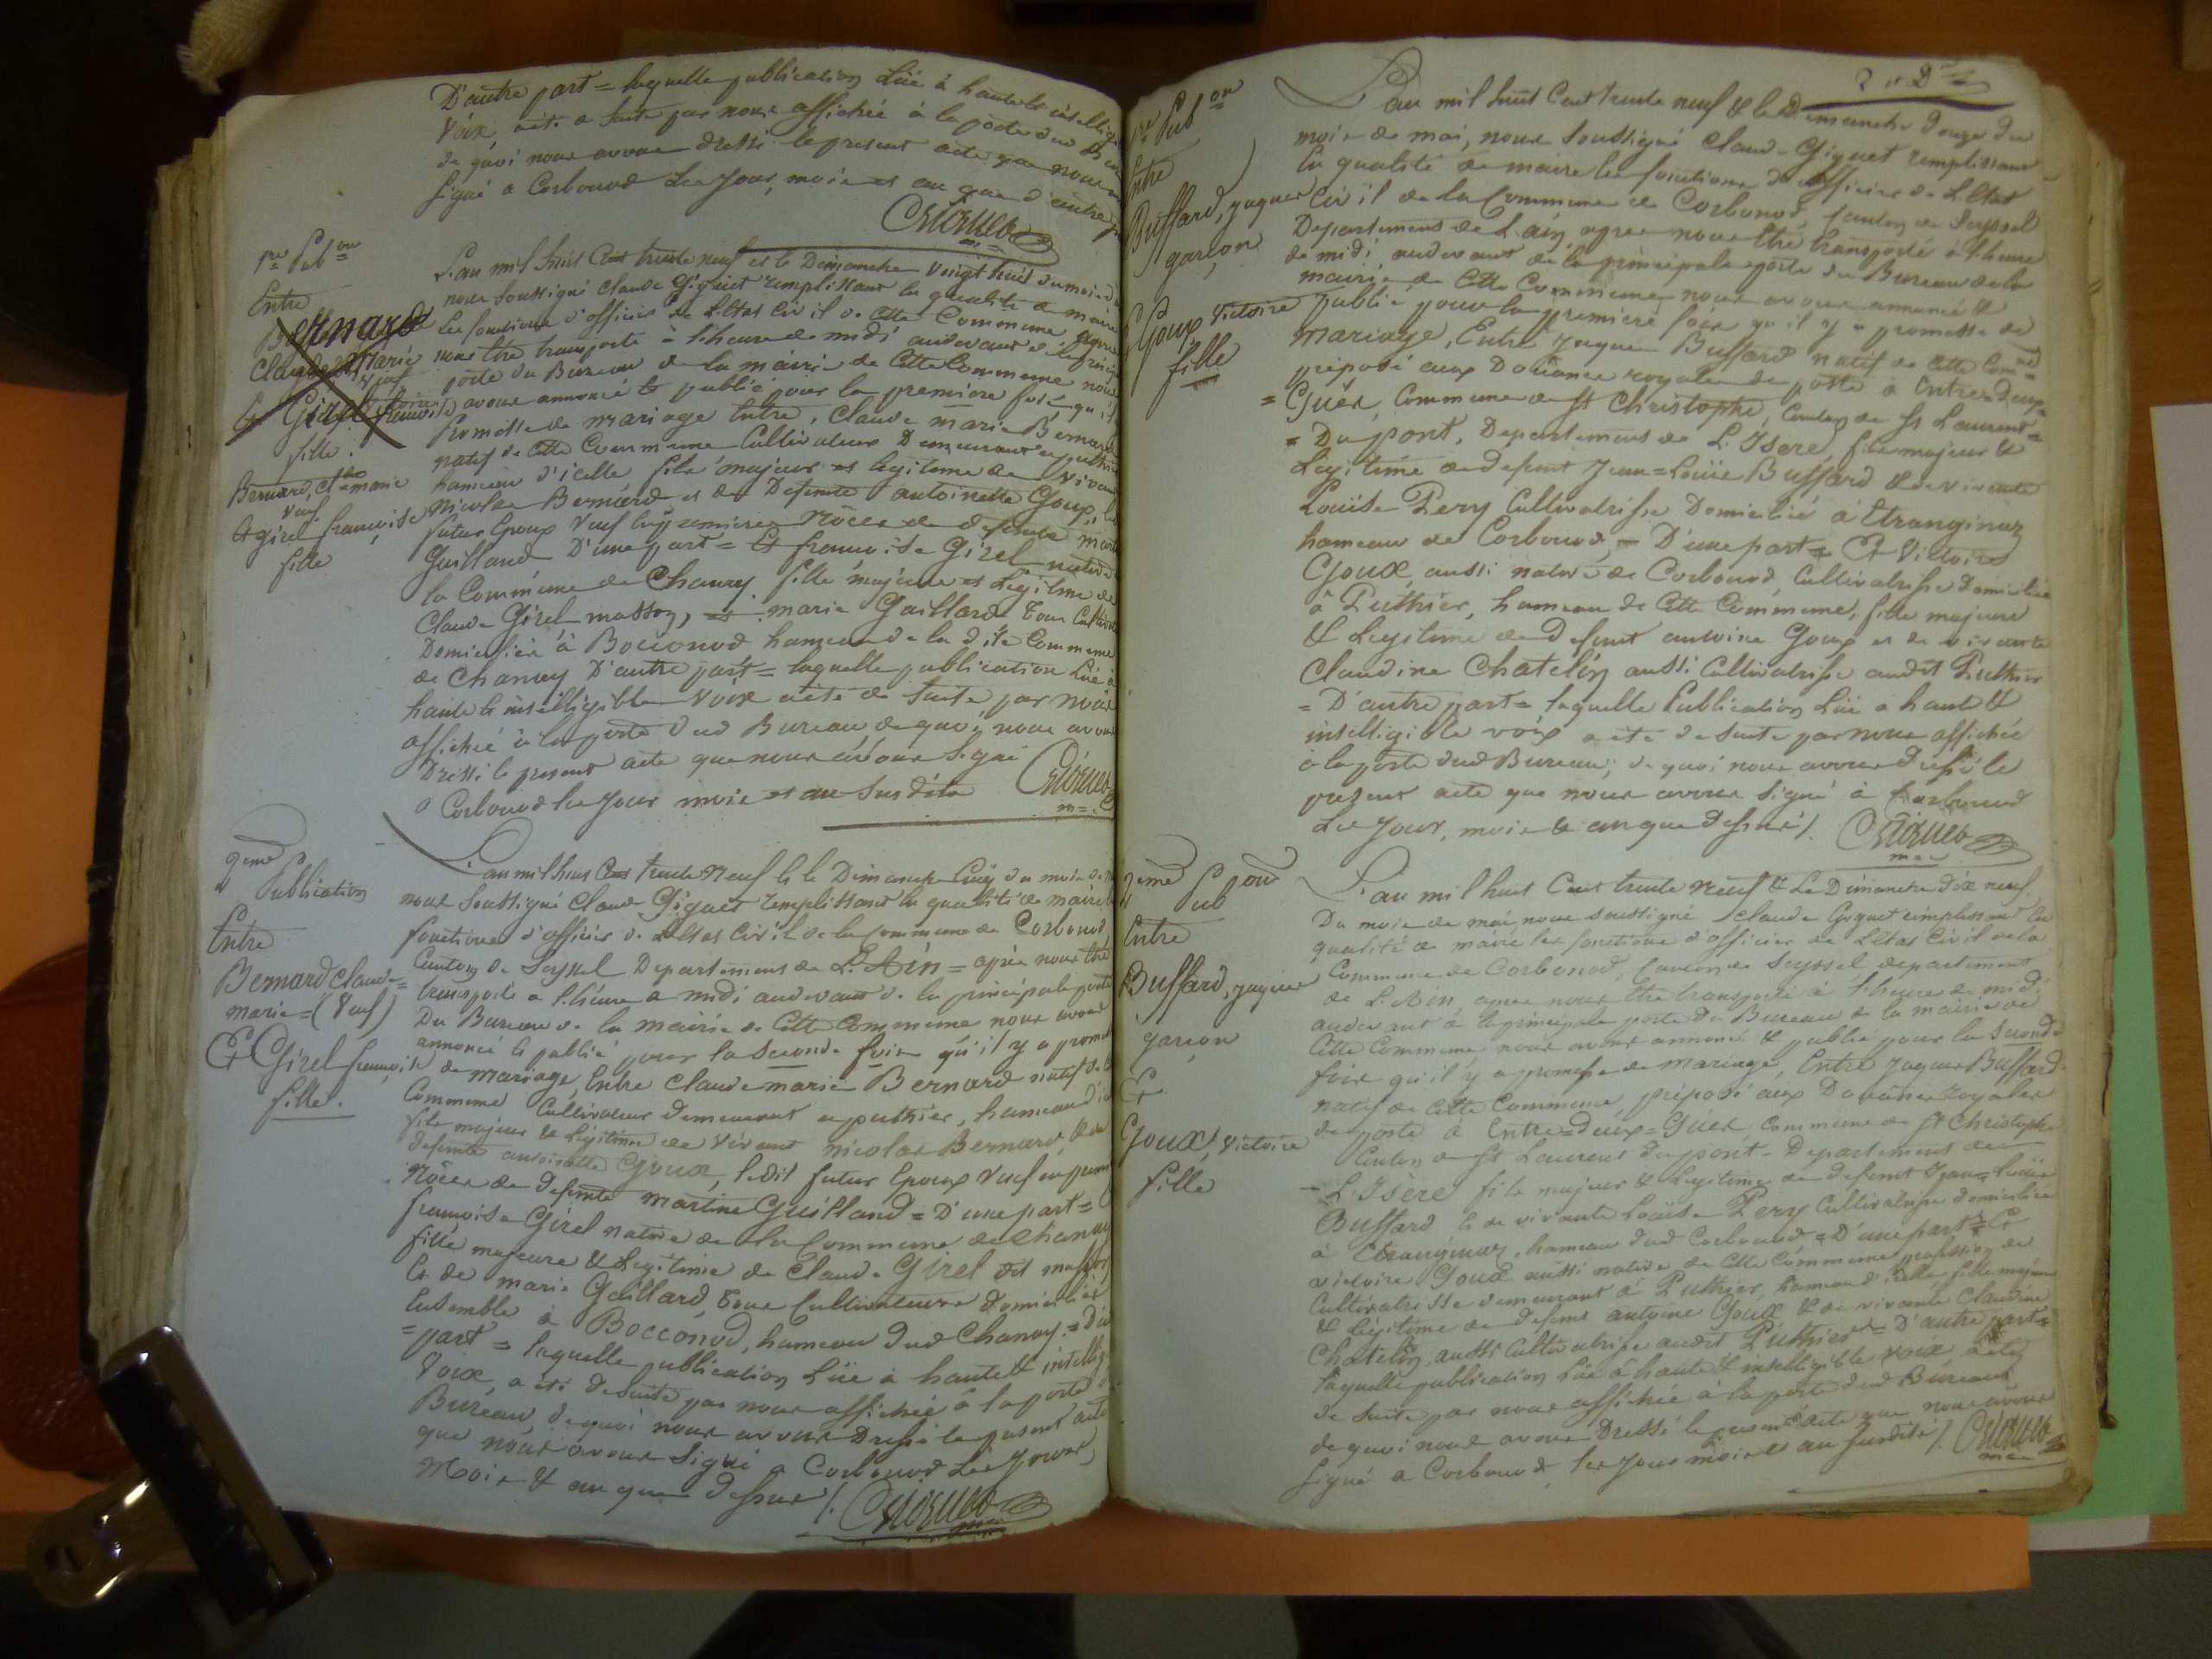 D'autre part = laquelle publication Lüe à haute & intellig
Voix, a été de suite par nous affichée à la porte dud Bureau
de quoi nous avons dressé le present acte que nous
signé a Corbonod Les jour, mois et an que d'autre p
1re Pubon
Entre
Bernard
Claude Marie
& Girel françoise
fille
Bernard, Cde marie
veuf
& girel françoise
fille
L'an mil huit Cent trente neuf et le Dimanche vingt huit du mois d
nous soussigné Claude Giguet remplissant la qualité de maire
Les fonctions d'officier de L'Etat Civil de cette Commune après
nous être transporté à l'heure de midi audevant de la princi
porte du Bureau de la mairie de Cette Commune nous
avons annoncé & publié pour la premiere fois qu'il
Promesse de mariage Entre, Claude marie Bernard
natif de Cette Commune Cultivateur Demeurant a puthier
hameau d'icelle fils majeur et legitime de vivant
Nicolas Bernard et de Defunte antoinette Goux, le
futur Epoux Veuf en premieres Nôces de defunte mart
Guilland D'une part = Et françoise Girel native
la Commune de Chanay fille majeure et Légitime de
Claude Girel masson, et marie Gaillard Tous Cultiv
Domiciliés à Bocconod hameau de la dite Commune
de Chanay D'autre part = laquelle publication Lüe à
haute & intelligible Voix a été de suite par nous
affichée à la porte dud Bureau de quoi nous avons
Dressé le present acte que nous avons signé
a Corbonod les jour mois et an susdits
2eme
Publication
Entre
Bernard Claude=
marie = (Veuf)
Et Girel françoise
fille.
L'an mil huit Cent trente Neuf & le Dimanche Cinq du mois de
nous soussigné Claude Giguet remplissant la qualité de maire
fonctions d'officier de L'Etat Civil de la Commune de Corbonod,
Canton de Seyssel Departement de L'Ain = après nous être
transporté a l'heure de midi audevant de la principale porte
Du Bureau de la mairie de Cette Commune nous avons
annoncé & publié pour la seconde fois qu'il y a promes
de mariage, Entre Claude marie Bernard natif de
Commune Cultivateur demeurant a puthier, hameau d'ic
fils majeur & Légitime de vivant nicolas Bernard, & de
defunte antoinette Goux, ledit futur Epoux Veuf en prem
Nôces de defunte martine Guilland = D'une part =
françoise Girel native de la Commune de Chanay
fille majeure & Légitime de Claude Girel dit masson
& de marie Gaillard, tous Cultivateurs domiciliés
Ensemble à Bocconod, hameau dud Chanay. = D'au
=part = laquelle publication Lüe à haute & intellig
Voix, a été de suite par nous affichée à la porte d
Bureau, de quoi nous avons Dressé le present acte
que nous avons signé a Corbonod Les jour,
Mois & an que dessus /.
1re Pubon
Entre
Buffard, jaques
garçon
Goux Victoire
fille
L'an mil huit Cent trente neuf & le Dimanche Douze du
mois de mai, nous soussigné Claude Giguet remplissant
la qualité de maire les fonctions d'officier de L'Etat
Civil de la Commune de Corbonod, Canton de Seyssel
Departement de L'ain, après nous être transporté à l'heure
de midi audevant de la principale porte du Bureau de la
mairie de Cette Commune nous avons annoncé &
publié pour la premiere fois qu'il y a promesse de
mariage, Entre Jaques Buffard natif de Cette Comne
préposé aux Doüanes royales de poste à Entre=Deux=
=Guër, Commune de St Christophe, Canton de St Laurent=
=Du pont, Departement de L'Isere, fils majeur &
Légitime de defunt Jean=Loüis Buffard & de vivante
Loüise Pery Cultivatrisse Domiciliée à Etranginaz
hameau de Corbonod, = D'une part = Et Victoire
Goux, aussi native de Corbonod, Cultivatrisse Domiciliée
à Puthier, hameau de Cette Commune, fille majeure
& Legitime de Defunt antoine Goux et de vivante
Claudine Chatelin aussi Cultivatrisse audit Puthier
= D'autre part = laquelle Publication Lüe a haute &
intelligible voix a été de suite par nous affichée
à la porte dud Bureau; de quoi nous avons Dressé le
present acte que nous avons signé à Corbonod
Les jour, mois & an que dessus /.
2eme
Pubon
Entre
Buffard, jaques
garçon
Et
Goux, Victoire
fille
L'an mil huit Cent trente neuf & Le Dimanche dix neuf
Du mois de mai nous soussigné Claude Giguet remplissant la
qualité de maire les fonctions d'officier de L'Etat Civil de la
Commune de Corbonod, Canton de Seyssel departement
de L'Ain, après nous être transporté à l'heure de midi
audevant à la principale porte du Bureau de la mairie de
Cette Commune nous avons annoncé & publié pour la seconde
fois qu'il y a promesse de mariage, Entre Jaques Buffard
natif de Cette Commune préposé aux Doüanes royales
de poste à Entre=Deux=Guër, Commune de St Christophe
Canton de St Laurent du pont. Departement de
L'Isère fils majeur & Legitime de defunt Jean=Loüis
Buffard & de vivante Loüise Pery Cultivatrisse domiciliée
à Etranginaz, hameau dud Corbonod = D'une part = Et
victoire Goux aussi native de Cette Commune profession de
Cultivatrisse demeurant à Puthier, hameau d'icelle fille majeure
& Légitime de defunt antoine Goux & de vivante Claudine
Chatelin, aussi Cultivatrisse audit Puthier = D'autre part=
laquelle publication Lüe à haute & intelligible voix, a été
de suite par nous affichée à la porte dud Bureau
de quoi nous avons Dressé le present acte que nous avons
signé a Corbonod, les jour mois et an susdits /.